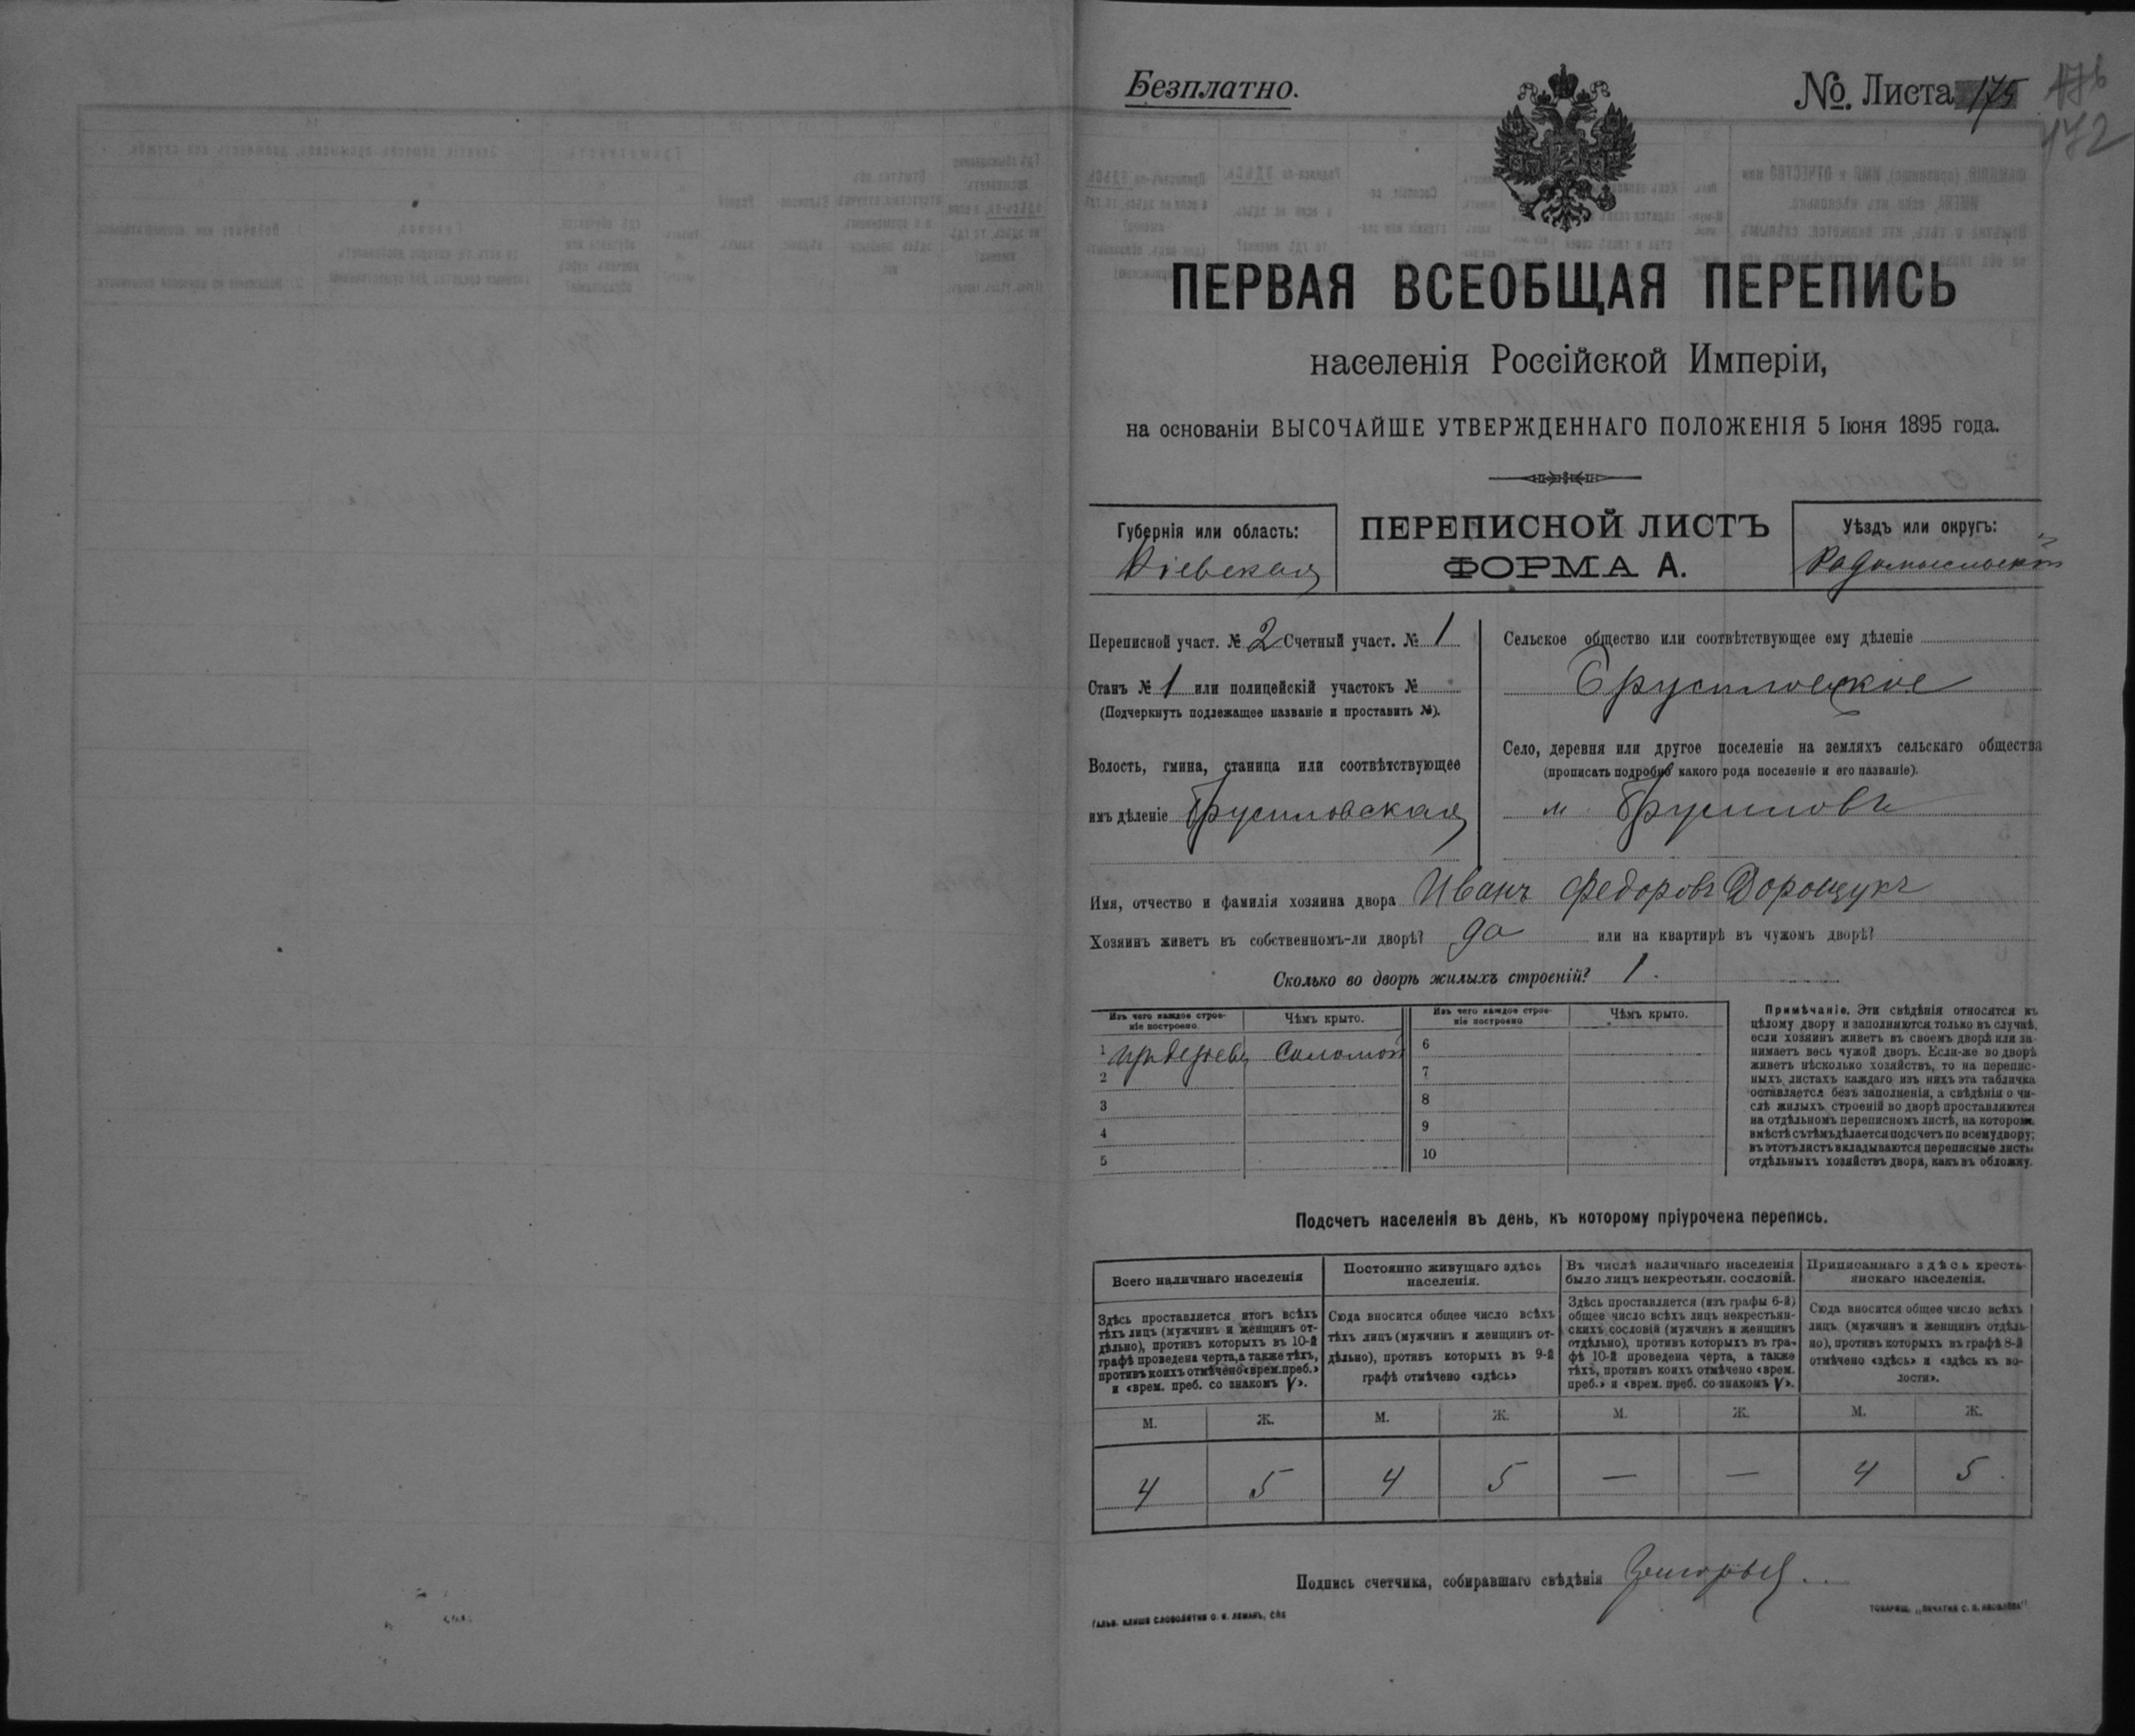 Безплатно.
№ Листа 175
176
172
ПЕРВАЯ ВСЕОБЩАЯ ПЕРЕПИСЬ
населенія Россійской Имперіи,
на основаніи ВЫСОЧАЙШЕ УТВЕРЖДЕННАГО ПОЛОЖЕНІЯ 5 Іюня 1895 года.
Губернія или область:
Кіевская
ПЕРЕПИСНОЙ ЛИСТЪ
ФОРМА А.
Уѣздъ или округъ:
Радомысльскій
Переписной участ. № 2 Счетный участ. № 1
Станъ № 1 или полицейскій участокъ №
(Подчеркнуть подлежащее названіе и проставить №).
Волость, гмина, станица или соотвѣтствующее
имъ дѣленіе Брусиловская
Сельское общество или соотвѣтствующее ему дѣленіе
Брусиловское
Село, деревня или другое поселеніе на земляхъ сельскаго общества
(прописать подробно какого рода поселеніе и его названіе).
м. Брусиловъ
Имя, отчество и фамилія хозяина двора Иванъ Федоровъ Дорощукъ
Хозяинъ живетъ въ собственномъ-ли дворѣ? да или на квартирѣ въ чужомъ дворѣ?
Сколько во дворѣ жилыхъ строеній? 1.
Изъ чего каждое строе-
ніе построено
Чѣмъ крыто.
Изъ чего каждое строе-
ніе построено
Чѣмъ крыто.
1 изъ дерева Соломой
2
3
4
5
6
7
8
9
10
Примѣчаніе. Эти свѣдѣнія относятся къ
цѣлому двору и заполняются только въ случаѣ,
если хозяинъ живетъ въ своемъ дворѣ или за-
нимаетъ весь чужой дворъ. Если-же во дворѣ
живетъ нѣсколько хозяйствъ, то на перепис-
ныхъ листахъ каждаго изъ нихъ эта табличка
оставляется безъ заполненія, а свѣдѣнія о чи-
слѣ жилыхъ строеній во дворѣ проставляются
на отдѣльномъ переписномъ листѣ, на которомъ
вмѣстѣ съ тѣмъ дѣлается подсчетъ по всему двору;
въ этотъ листъ вкладываются переписные листы
отдѣльныхъ хозяйствъ двора, какъ въ обложку.
Подсчетъ населенія въ день, къ которому пріурочена перепись.
Всего наличнаго населенія
Здѣсь проставляется итогъ всѣхъ
тѣхъ лицъ (мужчинъ и женщинъ от-
дѣльно), противъ которыхъ въ 10-й
графѣ проведена черта, а также тѣхъ,
противъ коихъ отмѣчено «врем. преб.»
и «врем. преб. со знакомъ V».
Постоянно живущаго здѣсь
населенія.
Сюда вносится общее число всѣхъ
тѣхъ лицъ (мужчинъ и женщинъ от-
дѣльно), противъ которыхъ въ 9-й
графѣ отмѣчено «здѣсь»
Въ числѣ наличнаго населенія
было лицъ некрестьян. сословій.
Здѣсь проставляется (изъ графы 6-й)
общее число всѣхъ лицъ некрестьян-
скихъ сословій (мужчинъ и женщинъ
отдѣльно), противъ которыхъ въ гра-
фѣ 10-й проведена черта, а также
тѣхъ, противъ коихъ отмѣчено «врем.
преб.» и «врем. преб. со знакомъ V».
Приписаннаго здѣсь кресть-
янскаго населенія.
Сюда вносится общее число всѣхъ
лицъ (мужчинъ и женщинъ отдѣль-
но), противъ которыхъ въ графѣ 8-й
отмѣчено «здѣсь» и «здѣсь къ во-
лости».
М. Ж. М. Ж. М. Ж. М. Ж.
4 5 4 5 — — 4 5
Подпись счетчика, собиравшаго свѣдѣнія
ГАЛЬВ. КЛИШЕ СЛОВОЛИТНИ О. И. ЛЕМАНЪ, СПБ
ТОВАРИЩ. „ПЕЧАТНЯ С. П. ЯКОВЛЕВА"